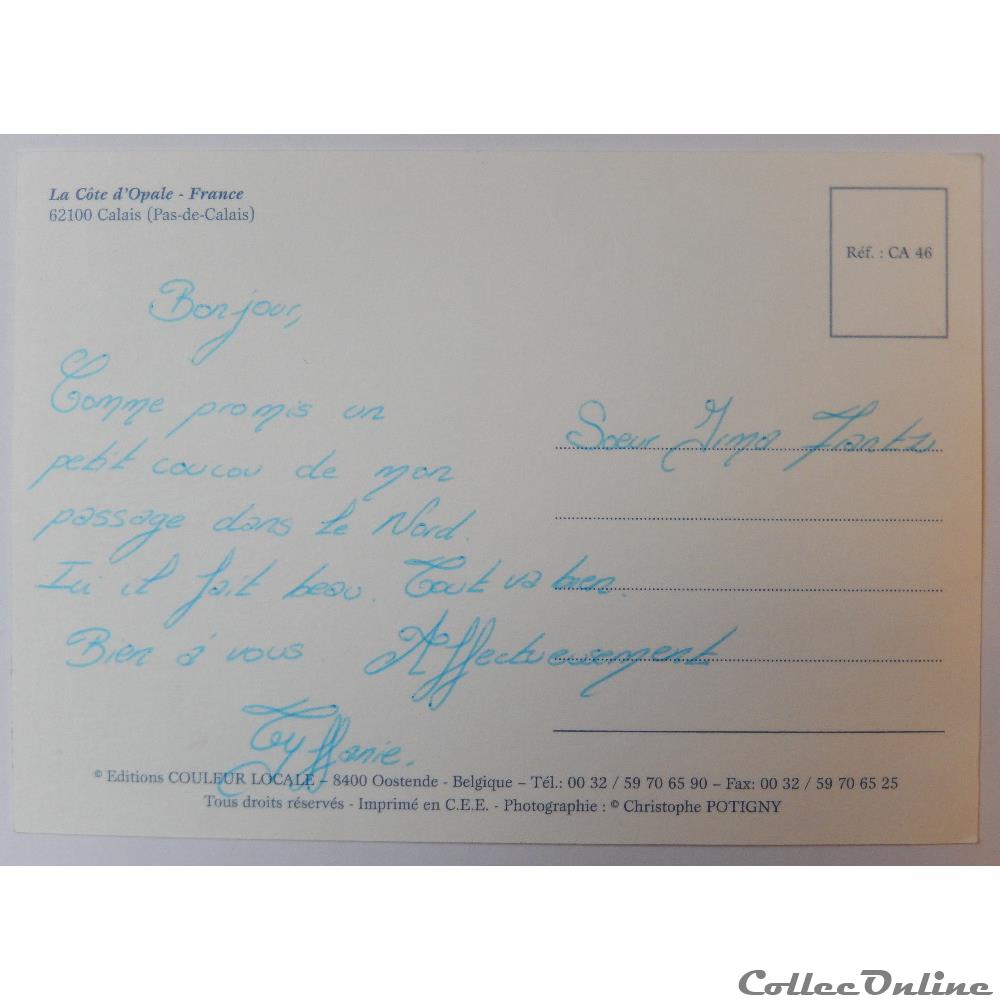 La Côte d'Opale - France
62100 Calais (Pas-de-Calais)
Réf. : CA 46
Bonjour,
Comme promis un
petit coucou de mon
passage dans le Nord.
Ici il fait beau. Tout va bien.
Bien à vous. Affectueusement
Tyffanie.
Soeur
© Editions COULEUR LOCALE – 8400 Oostende - Belgique – Tél.: 00 32 / 59 70 65 90 – Fax: 00 32 / 59 70 65 25
Tous droits réservés - Imprimé en C.E.E. - Photographie : © Christophe POTIGNY
CollecOnline